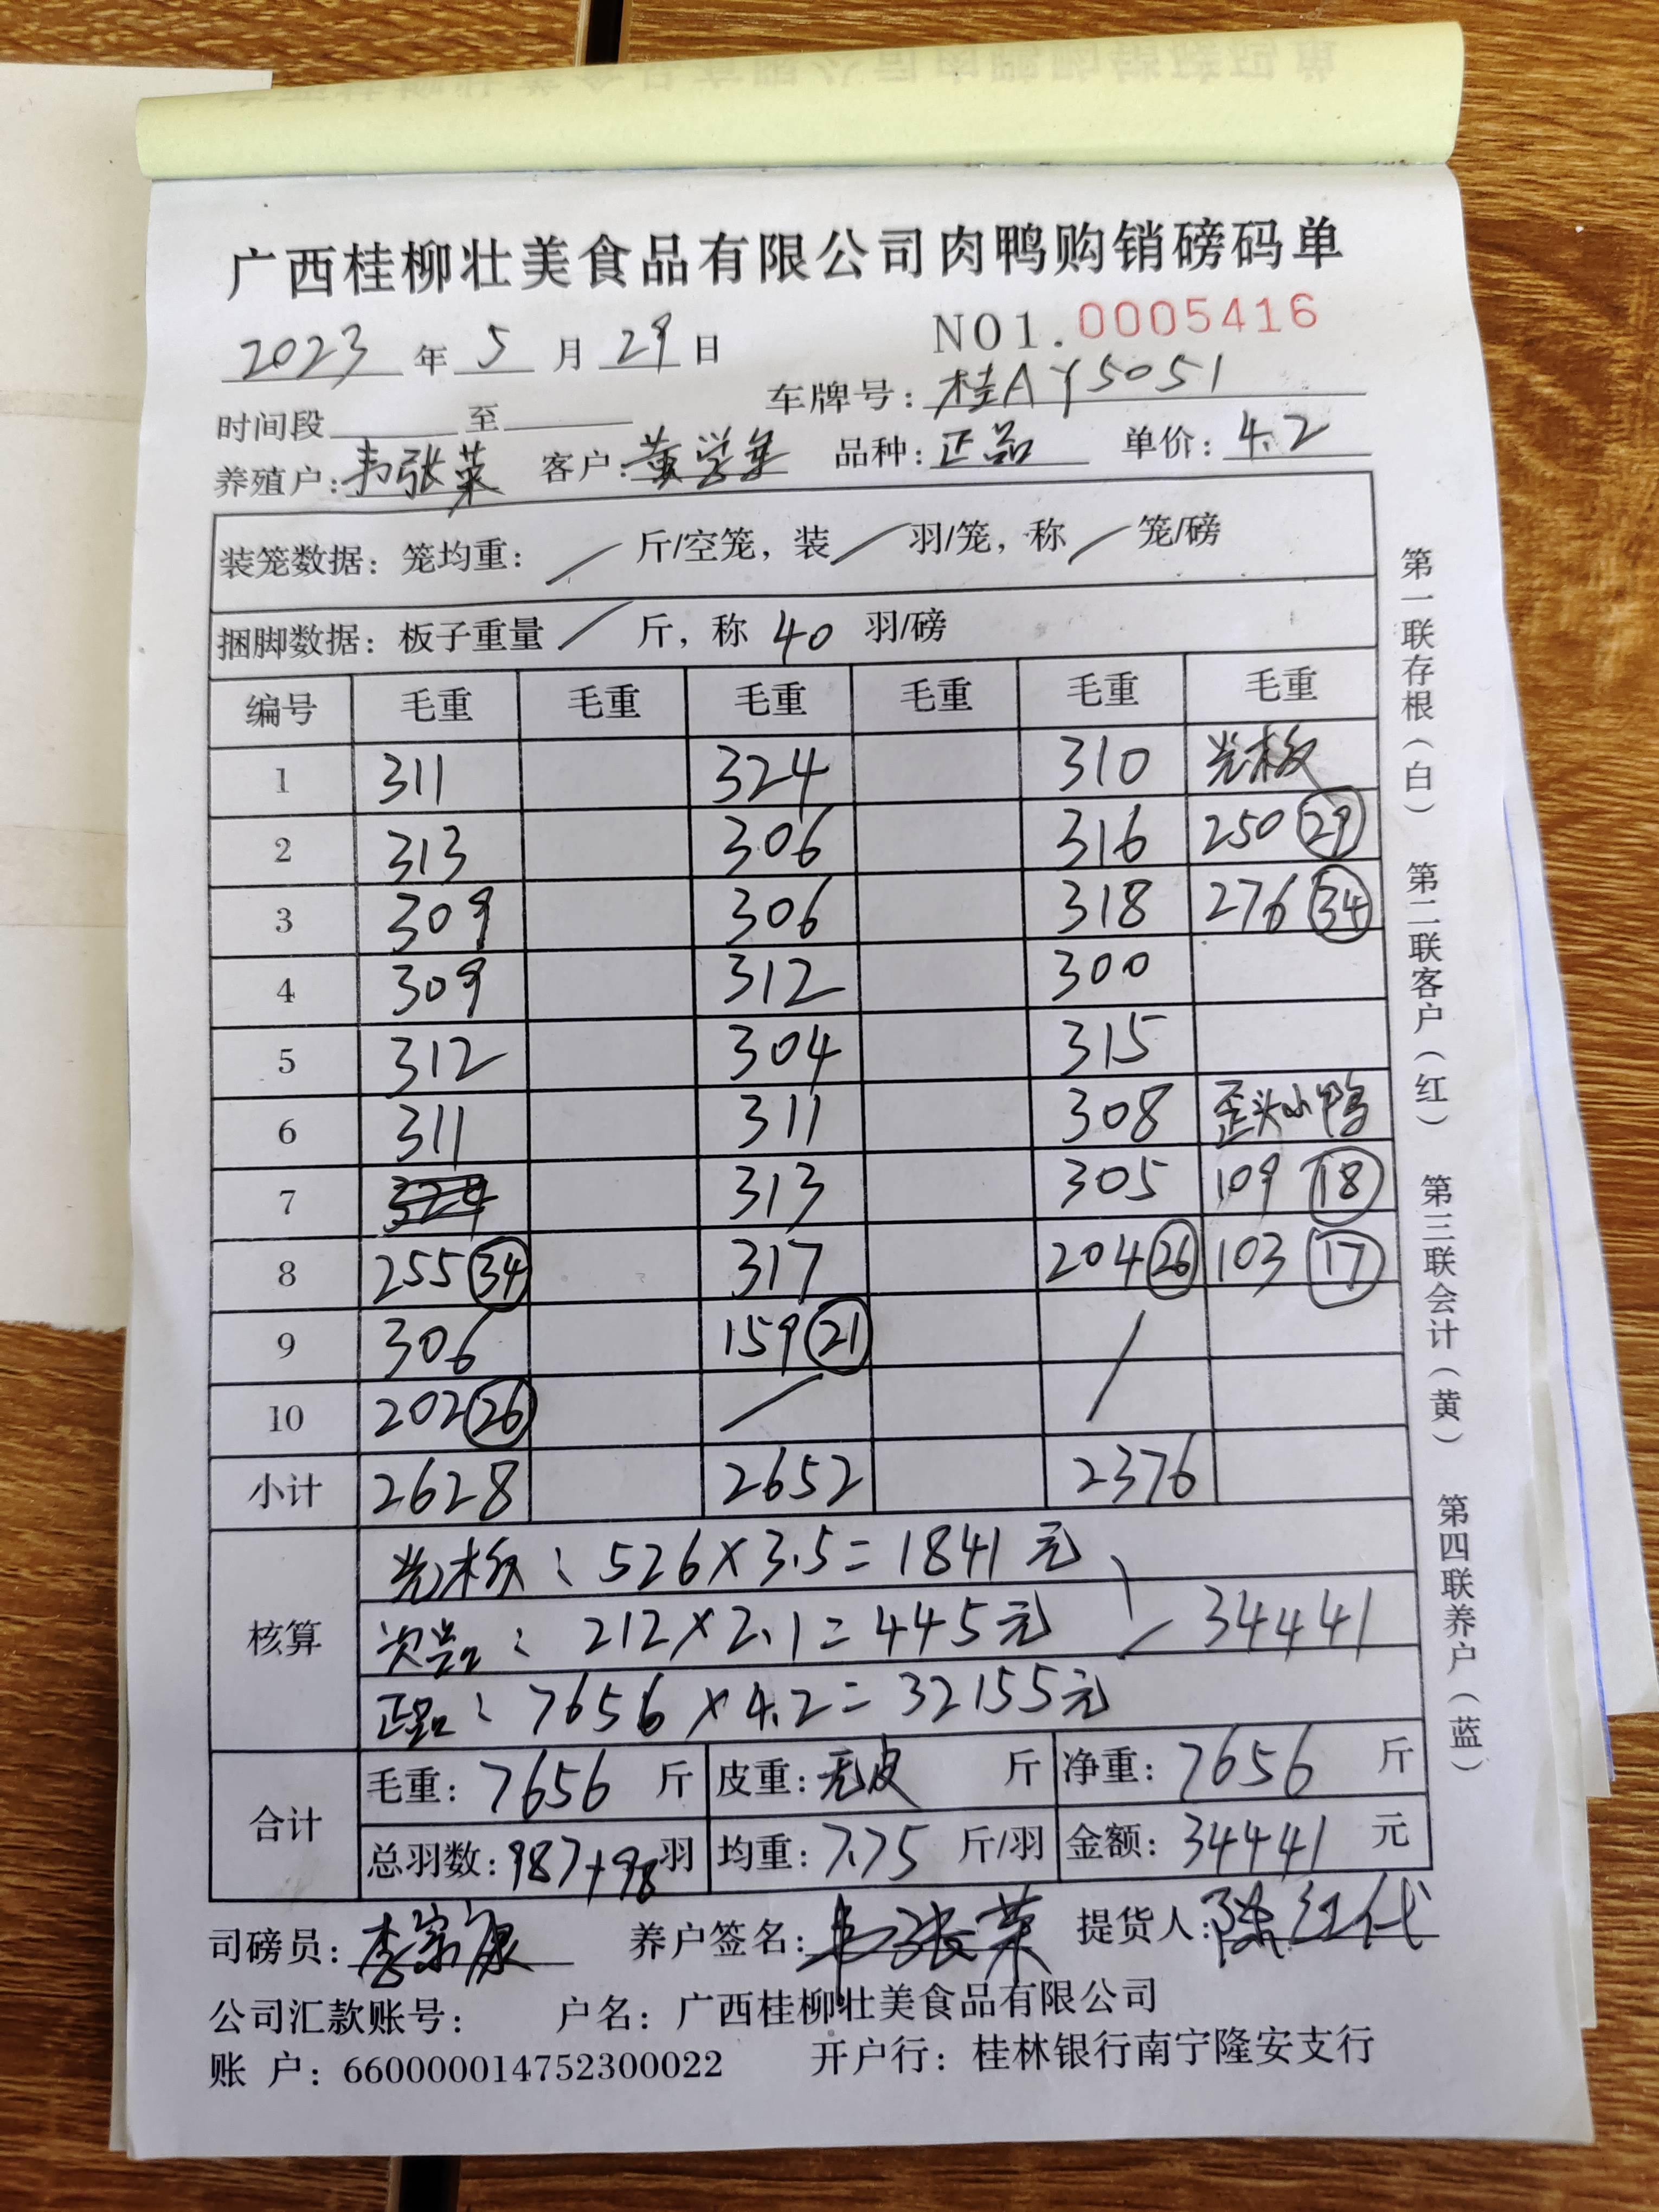 广西桂柳壮美食品有限公司肉鸭购销磅码单
2023 年 5 月 29 日 NO1.0005416
时间段 至 车牌号：桂AY5051
养殖户：韦张荣 客户：黄学 品种：正品 单价：4.2
装笼数据：笼均重： / 斤/空笼，装 / 羽/笼，称 / 笼/磅
捆脚数据：板子重量 / 斤，称 40 羽/磅
编号 毛重 毛重 毛重 毛重 毛重 毛重
1 311 324 310 光板
2 313 306 316 250 29
3 309 306 318 276 34
4 309 312 300
5 312 304 315
6 311 311 308 歪头小鸭
7 313 305 109 18
8 255 34 317 204 26 103 17
9 306 159 21 /
10 202 26 /
小计 2628 2652 2376
核算
光板：526×3.5=1841元
次品：212×2.1=445元 34441
正品：7656×4.2=32155元
合计
毛重：7656 斤 皮重：无皮 斤 净重：7656 斤
总羽数：987+98羽 均重：7.75 斤/羽 金额：34441 元
司磅员：李宗康 养户签名：韦张荣 提货人：陈红代
公司汇款账号： 户名：广西桂柳壮美食品有限公司
账 户：660000014752300022 开户行：桂林银行南宁隆安支行
第一联存根（白） 第二联客户（红） 第三联会计（黄） 第四联养户（蓝）